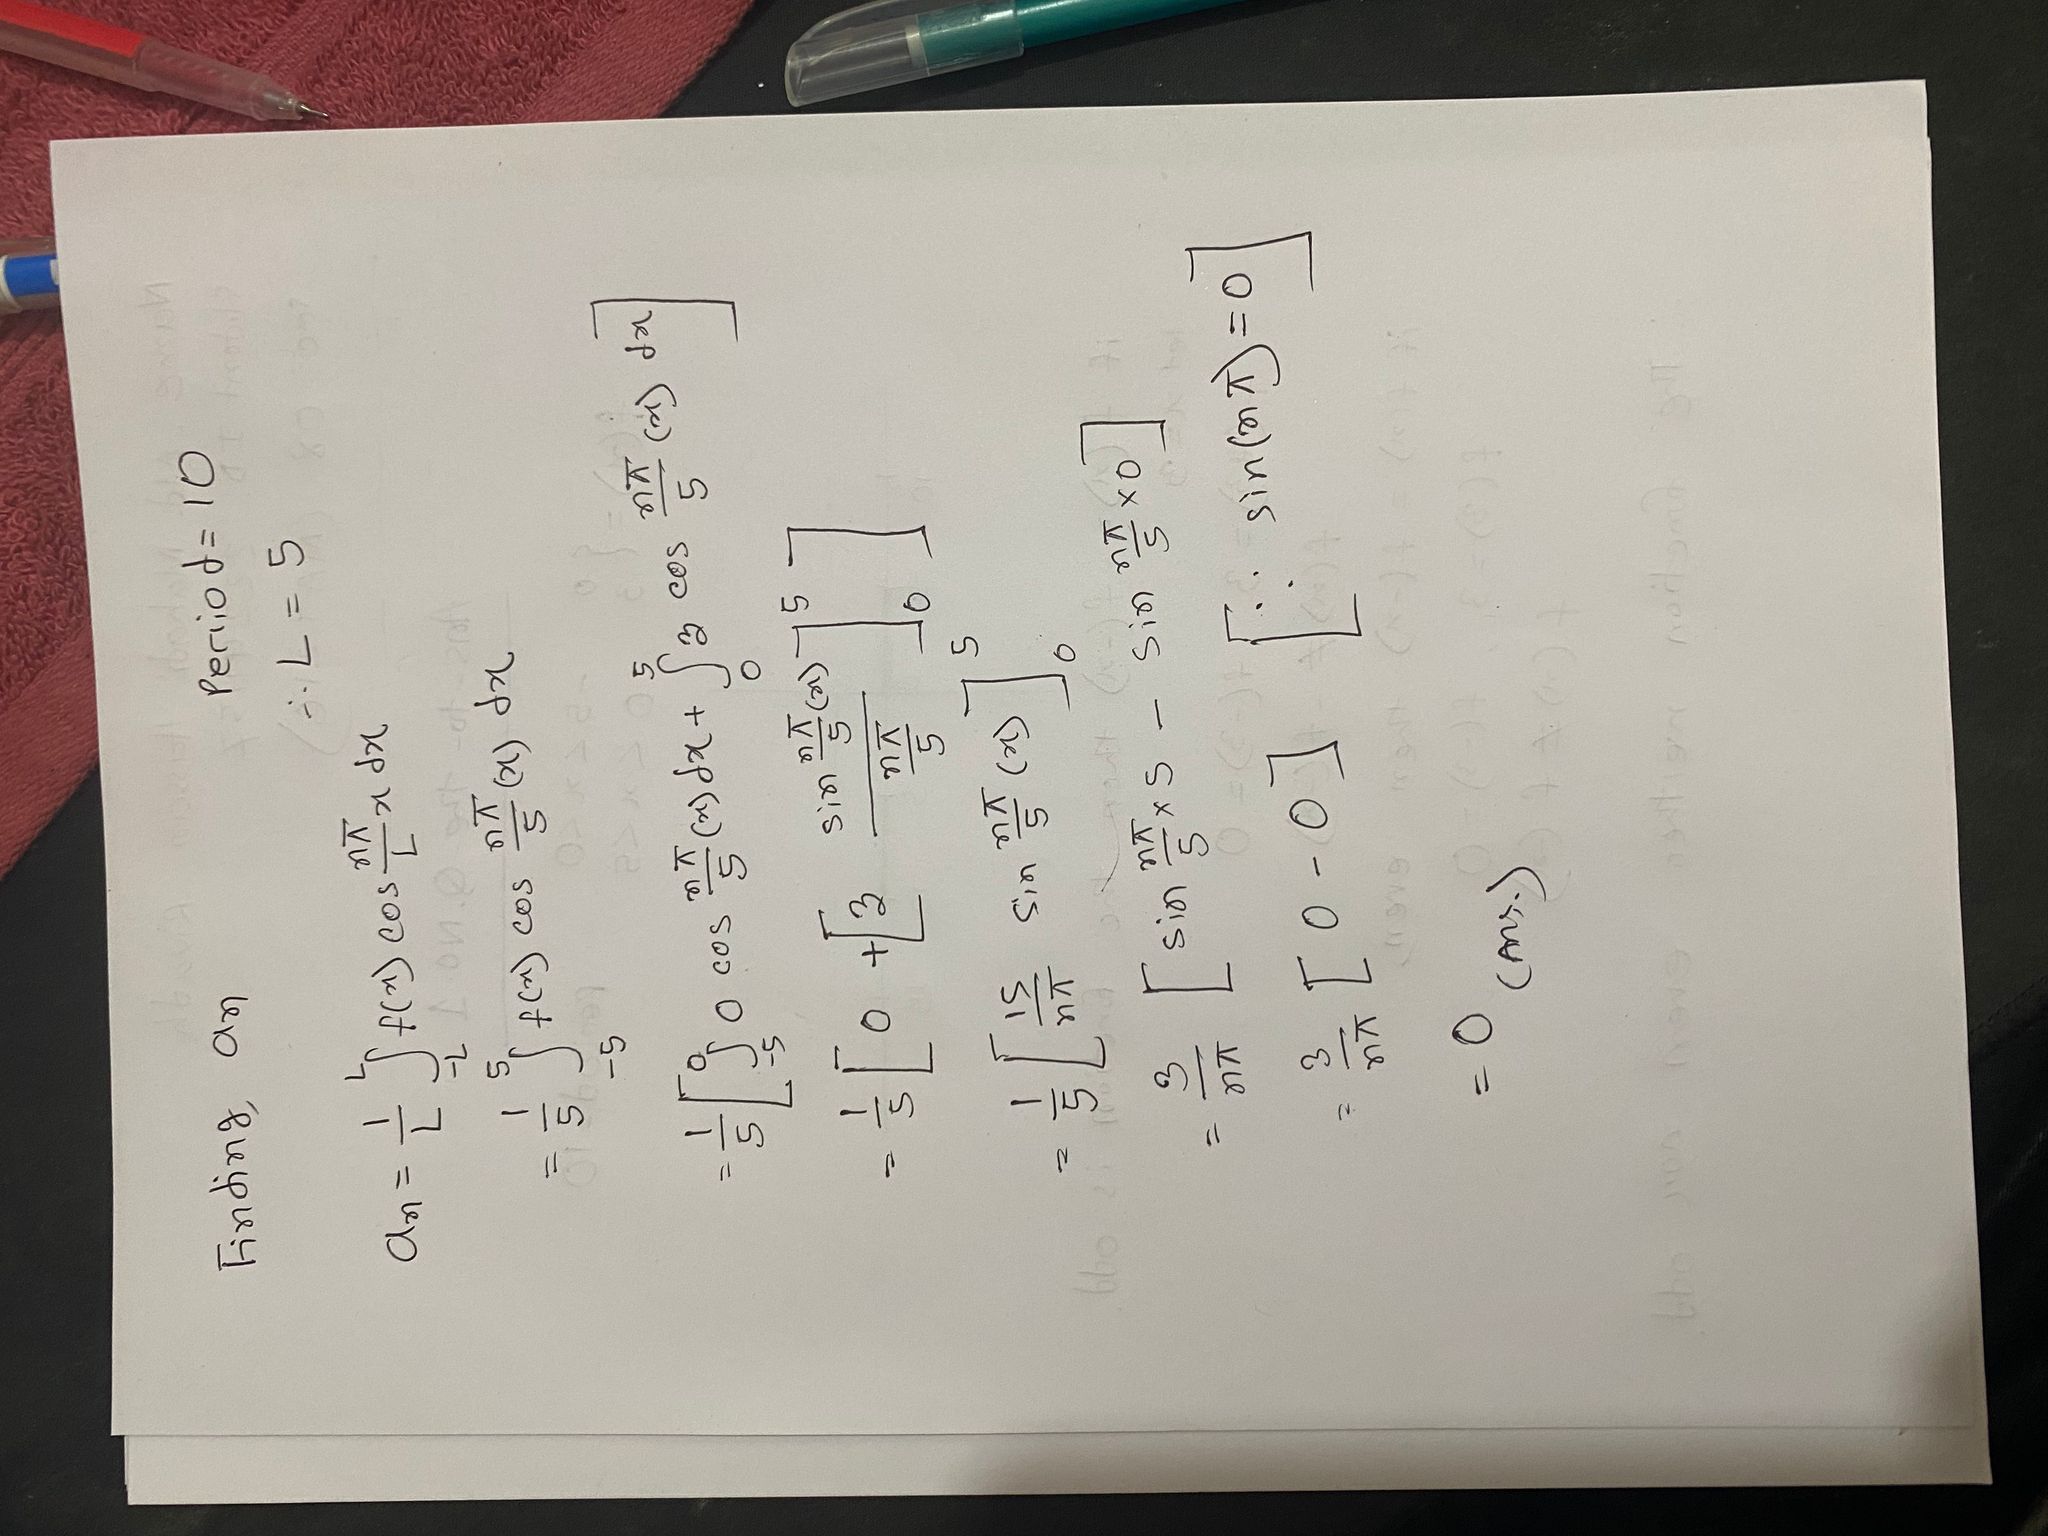 Finding, an
Period = 10
∴ L = 5
an = 1/L ∫_{-L}^{L} f(x) cos nπ/L x dx
= 1/5 ∫_{-5}^{5} f(x) cos nπ/5 (x) dx
= 1/5 [ ∫_{-5}^{0} 0 cos nπ/5 (x) dx + ∫_{0}^{5} 3 cos nπ/5 (x) dx ]
= 1/5 [ 0 + [ 3 (sin nπ/5 (x)) / (nπ/5) ]_{0}^{5} ]
= 1/5 [ 15/nπ sin nπ/5 (x) ]_{0}^{5}
= 3/nπ [ sin nπ/5 × 5 - sin nπ/5 × 0 ]
= 3/nπ [ 0 - 0 ] [ ∵ sin(nπ) = 0 ]
= 0 (Ans.)